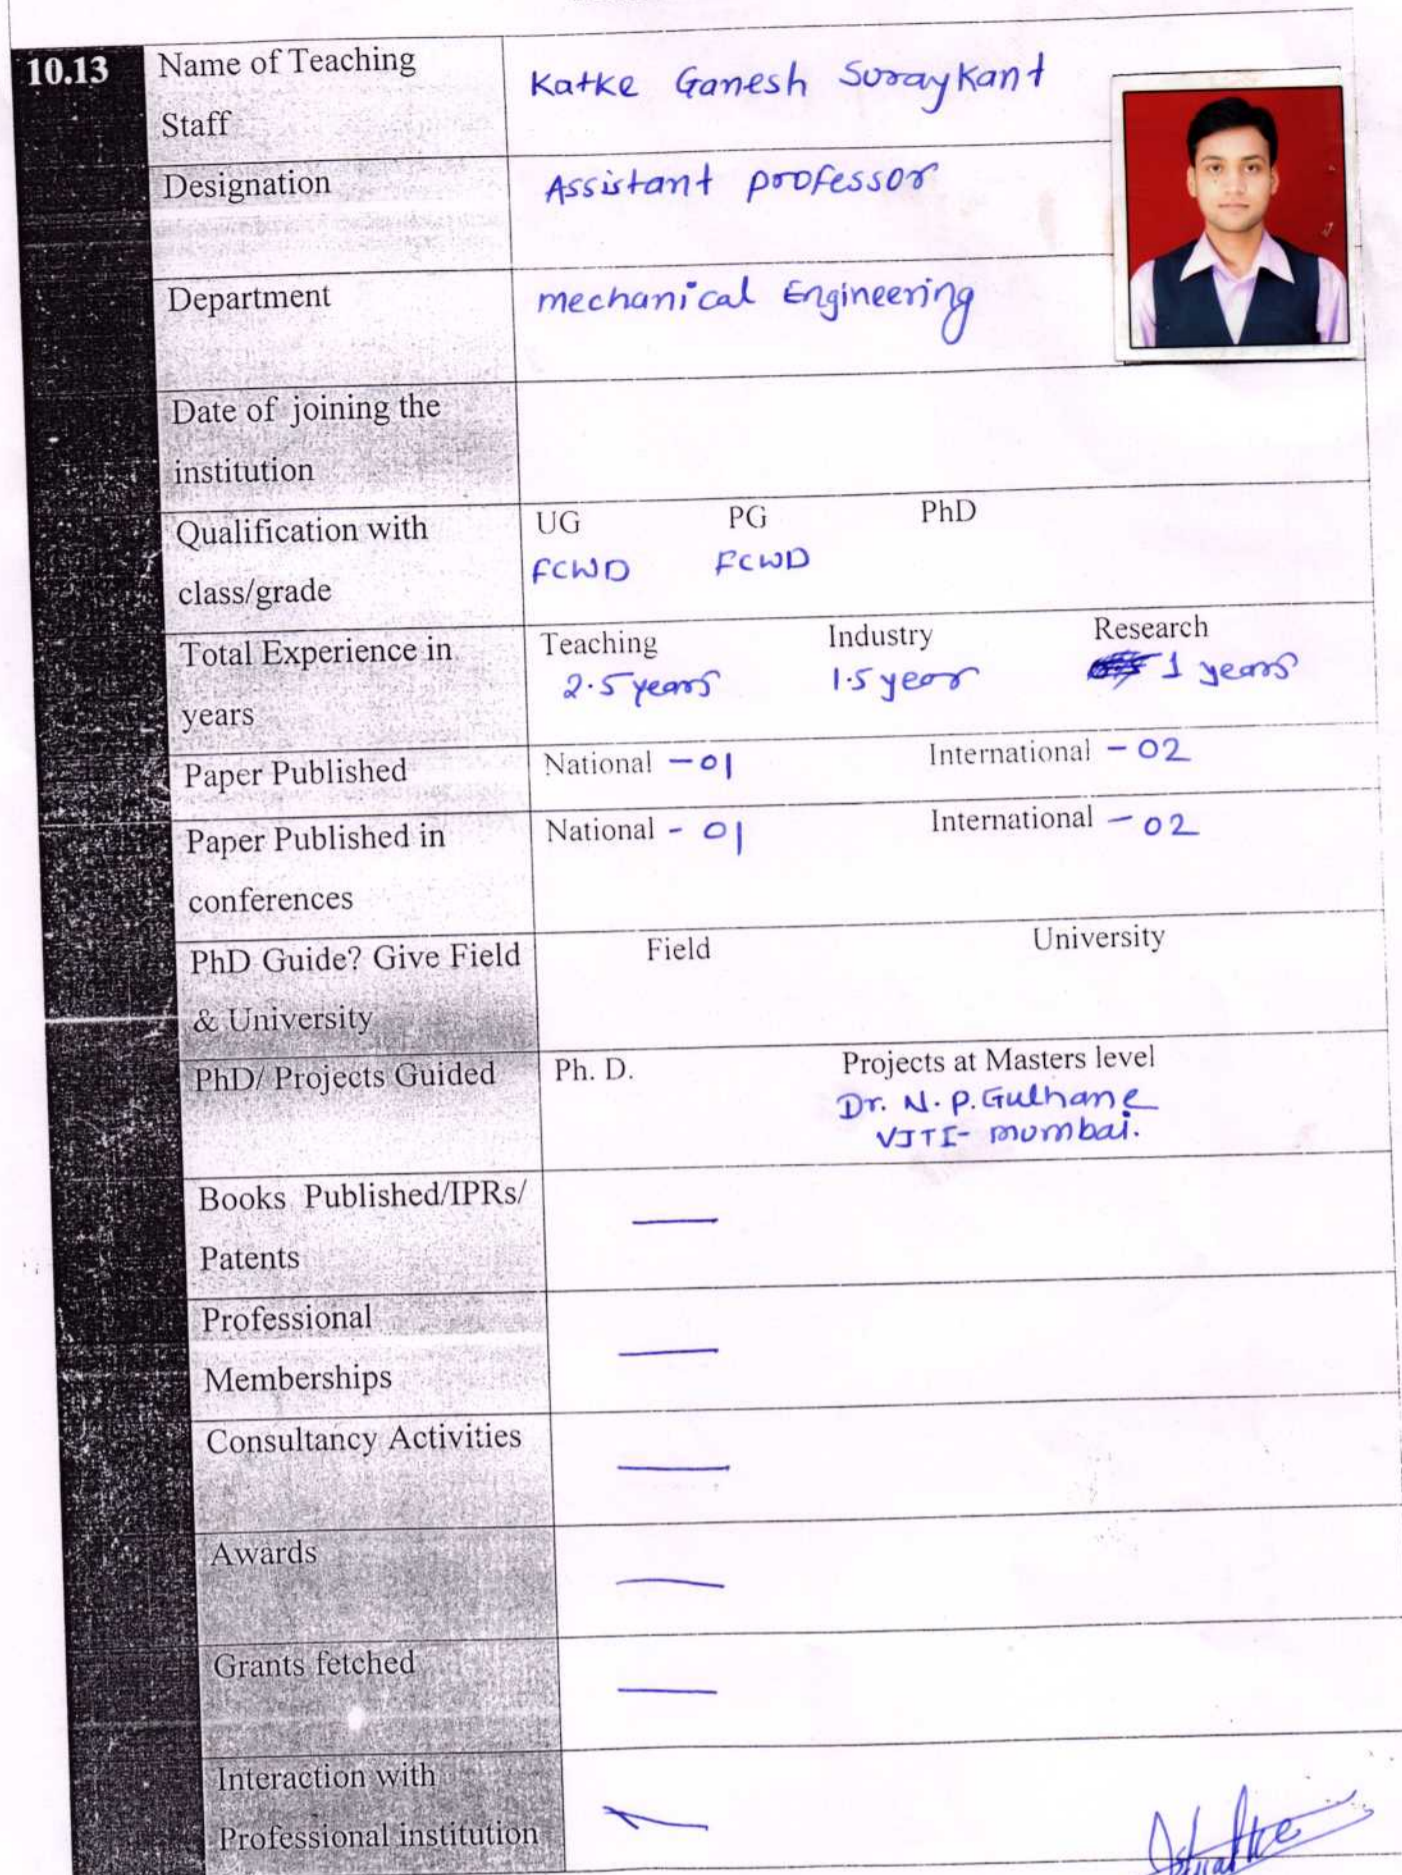 10.13 Name of Teaching Katke Ganesh SurayKant
Staff
Designation Assistant professor
Department mechanical Engineering
Date of joining the
institution
Qualification with UG PG PhD
class/grade FCWD FCWD
Total Experience in Teaching Industry Research
years 2.5 years 1.5 year 1 years
Paper Published National - 01 International - 02
Paper Published in National - 01 International - 02
conferences
PhD Guide? Give Field Field University
& University
PhD/ Projects Guided Ph. D. Projects at Masters level
Dr. N. P. Gulhane
VJTI- mumbai.
Books Published/IPRs/ —
Patents
Professional —
Memberships
Consultancy Activities —
Awards —
Grants fetched —
Interaction with —
Professional institution